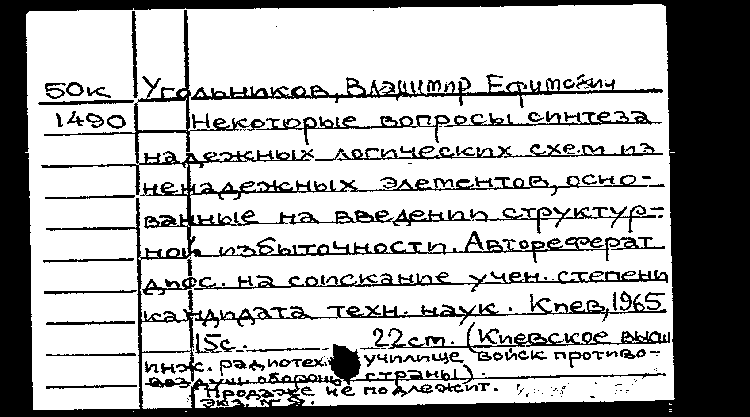 50к Угольников, Владимир Ефимович
1490 Некоторые вопросы синтеза
надежных логических схем из
ненадежных элементов, осно-
ванные на введении структур-
ной избыточности. Автореферат
дисс. на соискание учен. степени
кандидата техн. наук. Киев, 1965
15с. 22cm. (Киевское высш
инж. радиотех училище войск противо-
воздуш. обороны страны).
Продаже не подлежит.
Экз. №